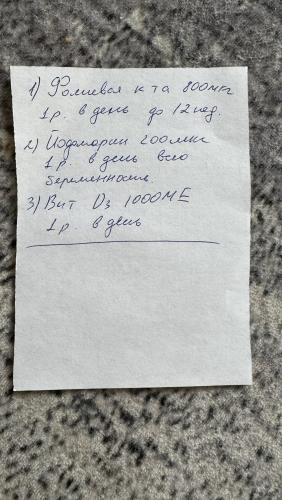 1) Фолиевая к та 800мкг
1р. в день до 12 нед.
2) Йодомарин 200мкг
1р. в день всю
беременность.
3) Вит D3 1000МЕ
1р. в день